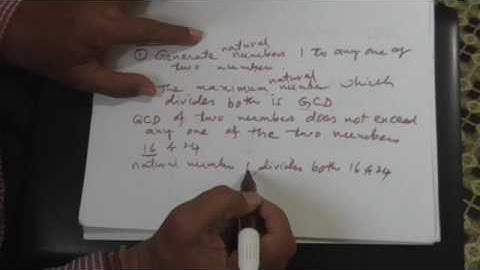 ① Generate natural numbers 1 to any one of
two number
The maximum natural number which
divides both is GCD
GCD of two numbers does not exceed
any one of the two numbers
16 & 24
natural number 1 divides both 16 & 24